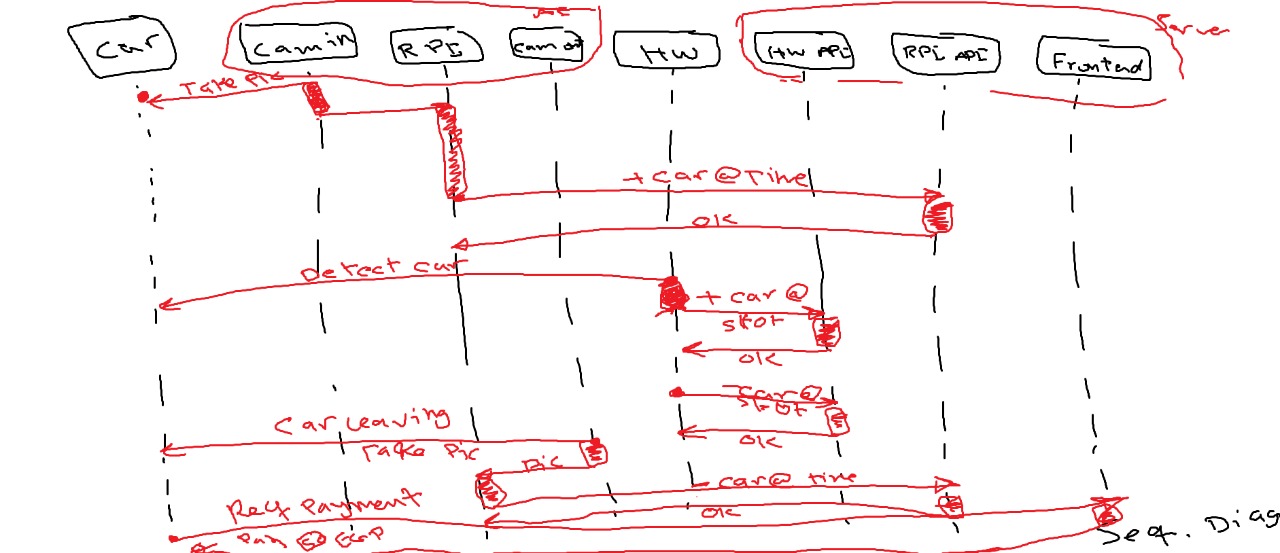 Server
Car
Cam in
RPI
Cam out
HW
HW API
RPI API
Frontend
Take pic
+ car @ Time
OK
Detect car
+ car @
slot
OK
- car @
slot
OK
Car Leaving
Take Pic
Pic
- car @ time
OK
Req Payment
Seq. Diag